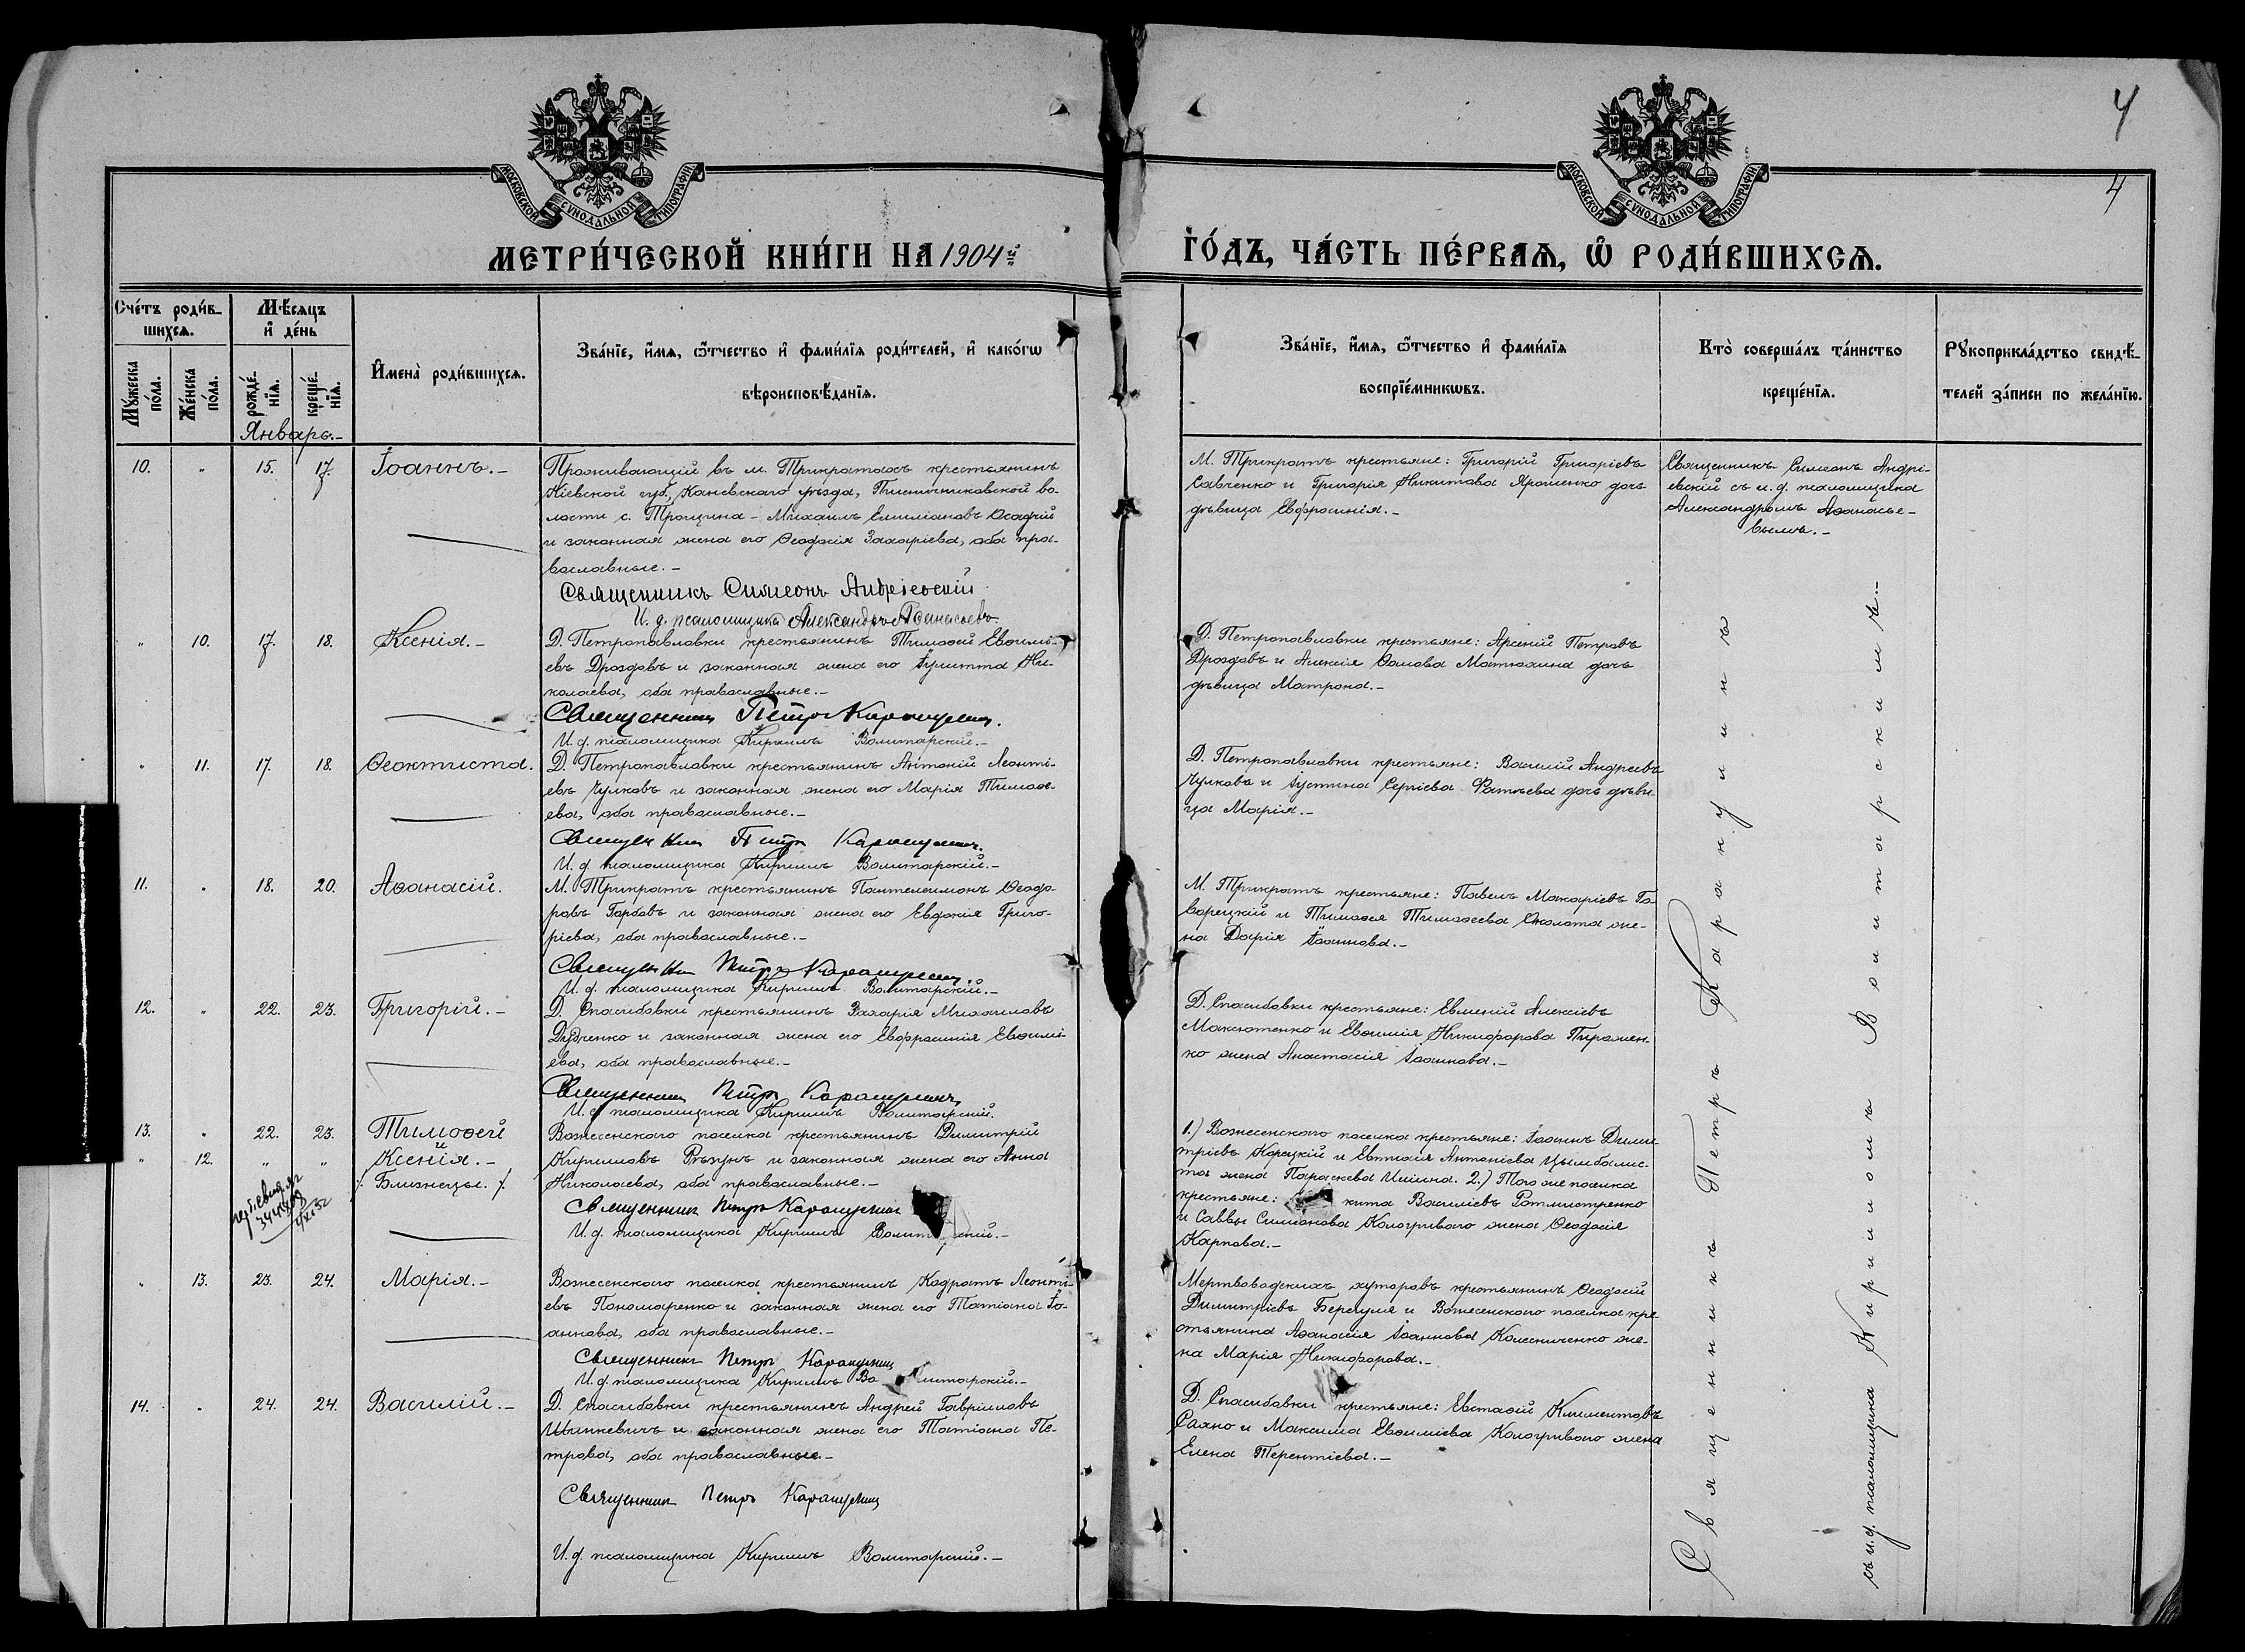 4
4
МОСКОВСКОЙ СѴНОДАЛЬНОЙ ТИПОГРАФІИ
МОСКОВСКОЙ СѴНОДАЛЬНОЙ ТИПОГРАФІИ
МЕТРИ́ЧЕСКОЙ КНИ́ГИ НА 1904й
ГО́ДЪ, ЧА́СТЬ ПЕ́РВАѦ, Ѽ РОДИ́ВШИХСѦ.
Сче́тъ роди́в-
шихсѧ.
Мѣ́сѧцъ
и҆ де́нь
Мꙋ́жеска
по́ла.
Же́нска
по́ла.
рожде́-
нїѧ.
креще́-
нїѧ.
Январь.-
И҆мена̀ роди́вшихсѧ.
Зва́нїе, и҆́мѧ, ѻ҆́тчество и҆ фами́лїѧ роди́телей, и҆ како́гѡ
вѣроисповѣ́данїѧ.
Зва́нїе, и҆́мѧ, ѻ҆́тчество и҆ фами́лїѧ
воспрїе́мникѡвъ.
Кто̀ соверша́лъ та́инство
креще́нїѧ.
Рꙋкоприкла́дство свидѣ́-
телей за́писи по жела́нїю.
10. " 15. 17. Іоаннъ.-
Проживающій въ м. Трикратахъ крестьянинъ
Кіевской губ, Каневскаго уѣзда, Пшеничниковской во-
лости с. Трощина - Михаилъ Емиліановъ Осадчій
и законная жена его Ѳеодосія Захаріева, оба пра-
вославные.-
Священникъ Симеонъ Андріевскій
И. д. псаломщика Александръ Аѳанасьевъ
М. Трикратъ крестьяне: Григорій Григоріевъ
Савченко и Григорія Никитова Ярошенко дочь
дѣвица Евфросинія.-
Священникъ Симеонъ Андрі-
евскій съ и. д. псаломщика
Александромъ Аѳанасье-
вымъ.-
" 10. 17. 18. Ксенія.-
Д. Петропавловки крестьянинъ Тимоѳей Евѳимі-
евъ Дроздовъ и законная жена его Іулитта Ни-
колаева, оба православные.-
Священникъ Петръ Каранулинъ.
И. д. псаломщика Кириллъ Волитарскій.-
Д. Петропавловки крестьяне: Арсеній Петровъ
Дроздовъ и Алексія Ѳомова Матюхина дочь
дѣвица Матрона.-
" 11. 17. 18. Ѳеоктиста.
Д. Петропавловки крестьянинъ Антоній Леонті-
евъ Чулковъ и законная жена его Марія Тимоѳе-
ева, оба православные.-
Священникъ Петръ Каранулинъ.
И. д. псаломщика Кириллъ Волитарскій.-
Д. Петропавловки крестьяне: Василій Андреевъ
Чулковъ и Іустина Сергіева Фатѣева дочь дѣви-
ца Марія.-
11. " 18. 20. Аѳанасій.
М. Трикратъ крестьянинъ Пантелеимонъ Ѳеодо-
ровъ Горбовъ и законная жена его Евдокія Григо-
ріева, оба православные.-
Священникъ Петръ Каранулинъ.
И. д. псаломщика Кириллъ Волитарскій.-
М. Трикратъ крестьяне: Павелъ Макаріевъ Го-
ворецкій и Тимоѳея Тимоѳеева Сколота же-
на Дарія Іоаннова.-
12. " 22. 23. Григорій.-
Д. Спасибовки крестьянинъ Захарія Михаиловъ
Дудченко и законная жена его Евфросинія Евѳимі-
ева, оба православные.-
Священникъ Петръ Каранулинъ
И. д. псаломщика Кириллъ Волитарскій.
Д. Спасибовки крестьяне: Евменій Алексіевъ
Максютенко и Евѳимія Никифорова Пирожен-
ко жена Анастасія Іоаннова.-
13. " 22. 23. Тимоѳей
и
" 12. " " Ксенія.-
/. Близнецы. /.
Вознесенскаго поселка крестьянинъ Димитрій
Кирилловъ Рѣзунъ и законная жена его Анна
Николаева, оба православные.-
Священникъ Петръ Каранулинъ
И. д. псаломщика Кириллъ
1.) Вознесенскаго поселка крестьяне: Іоаннъ Дими-
тріевъ Корецкій и Евтихія Антоніева Цымбалис-
та жена Параскева Иліина. 2.) Того же поселка
крестьяне: кита Василіевъ Ротмистренко
и Саввы Симеонова Кологриваго жена Ѳеодосія
Карпова.-
" 13. 23. 24. Марія.-
Вознесенскаго поселка крестьянинъ Кодратъ Леонті-
евъ Пономаренко и законная жена его Татіана Іо-
аннова, оба православные.-
Священникъ Петръ Каранулинъ
И. д. псаломщика Кириллъ Волитарскій.-
Мертвоводскихъ хуторовъ крестьянинъ Ѳеодосій
Димитріевъ Берегуля и Вознесенскаго поселка кре-
стьянина Аѳанасія Іоаннова Колесниченко же-
на Марія Никифорова.-
14. " 24. 24. Василій.-
Д. Спасибовки крестьянинъ Андрей Гавріиловъ
Иванкевичъ и законная жена его Татіана Пе-
трова, оба православные.-
Священникъ Петръ Каранулинъ
И. д. псаломщика Кириллъ Волитарскій.-
Д. Спасибовки крестьяне: Евстаѳій Климентовъ
Саяно и Максима Евѳиміева Кологриваго жена
Елена Терентіева.-
Священникъ Петръ Каранулинъ
съ и. д. псаломщика Кирилломъ Волитарскимъ.-